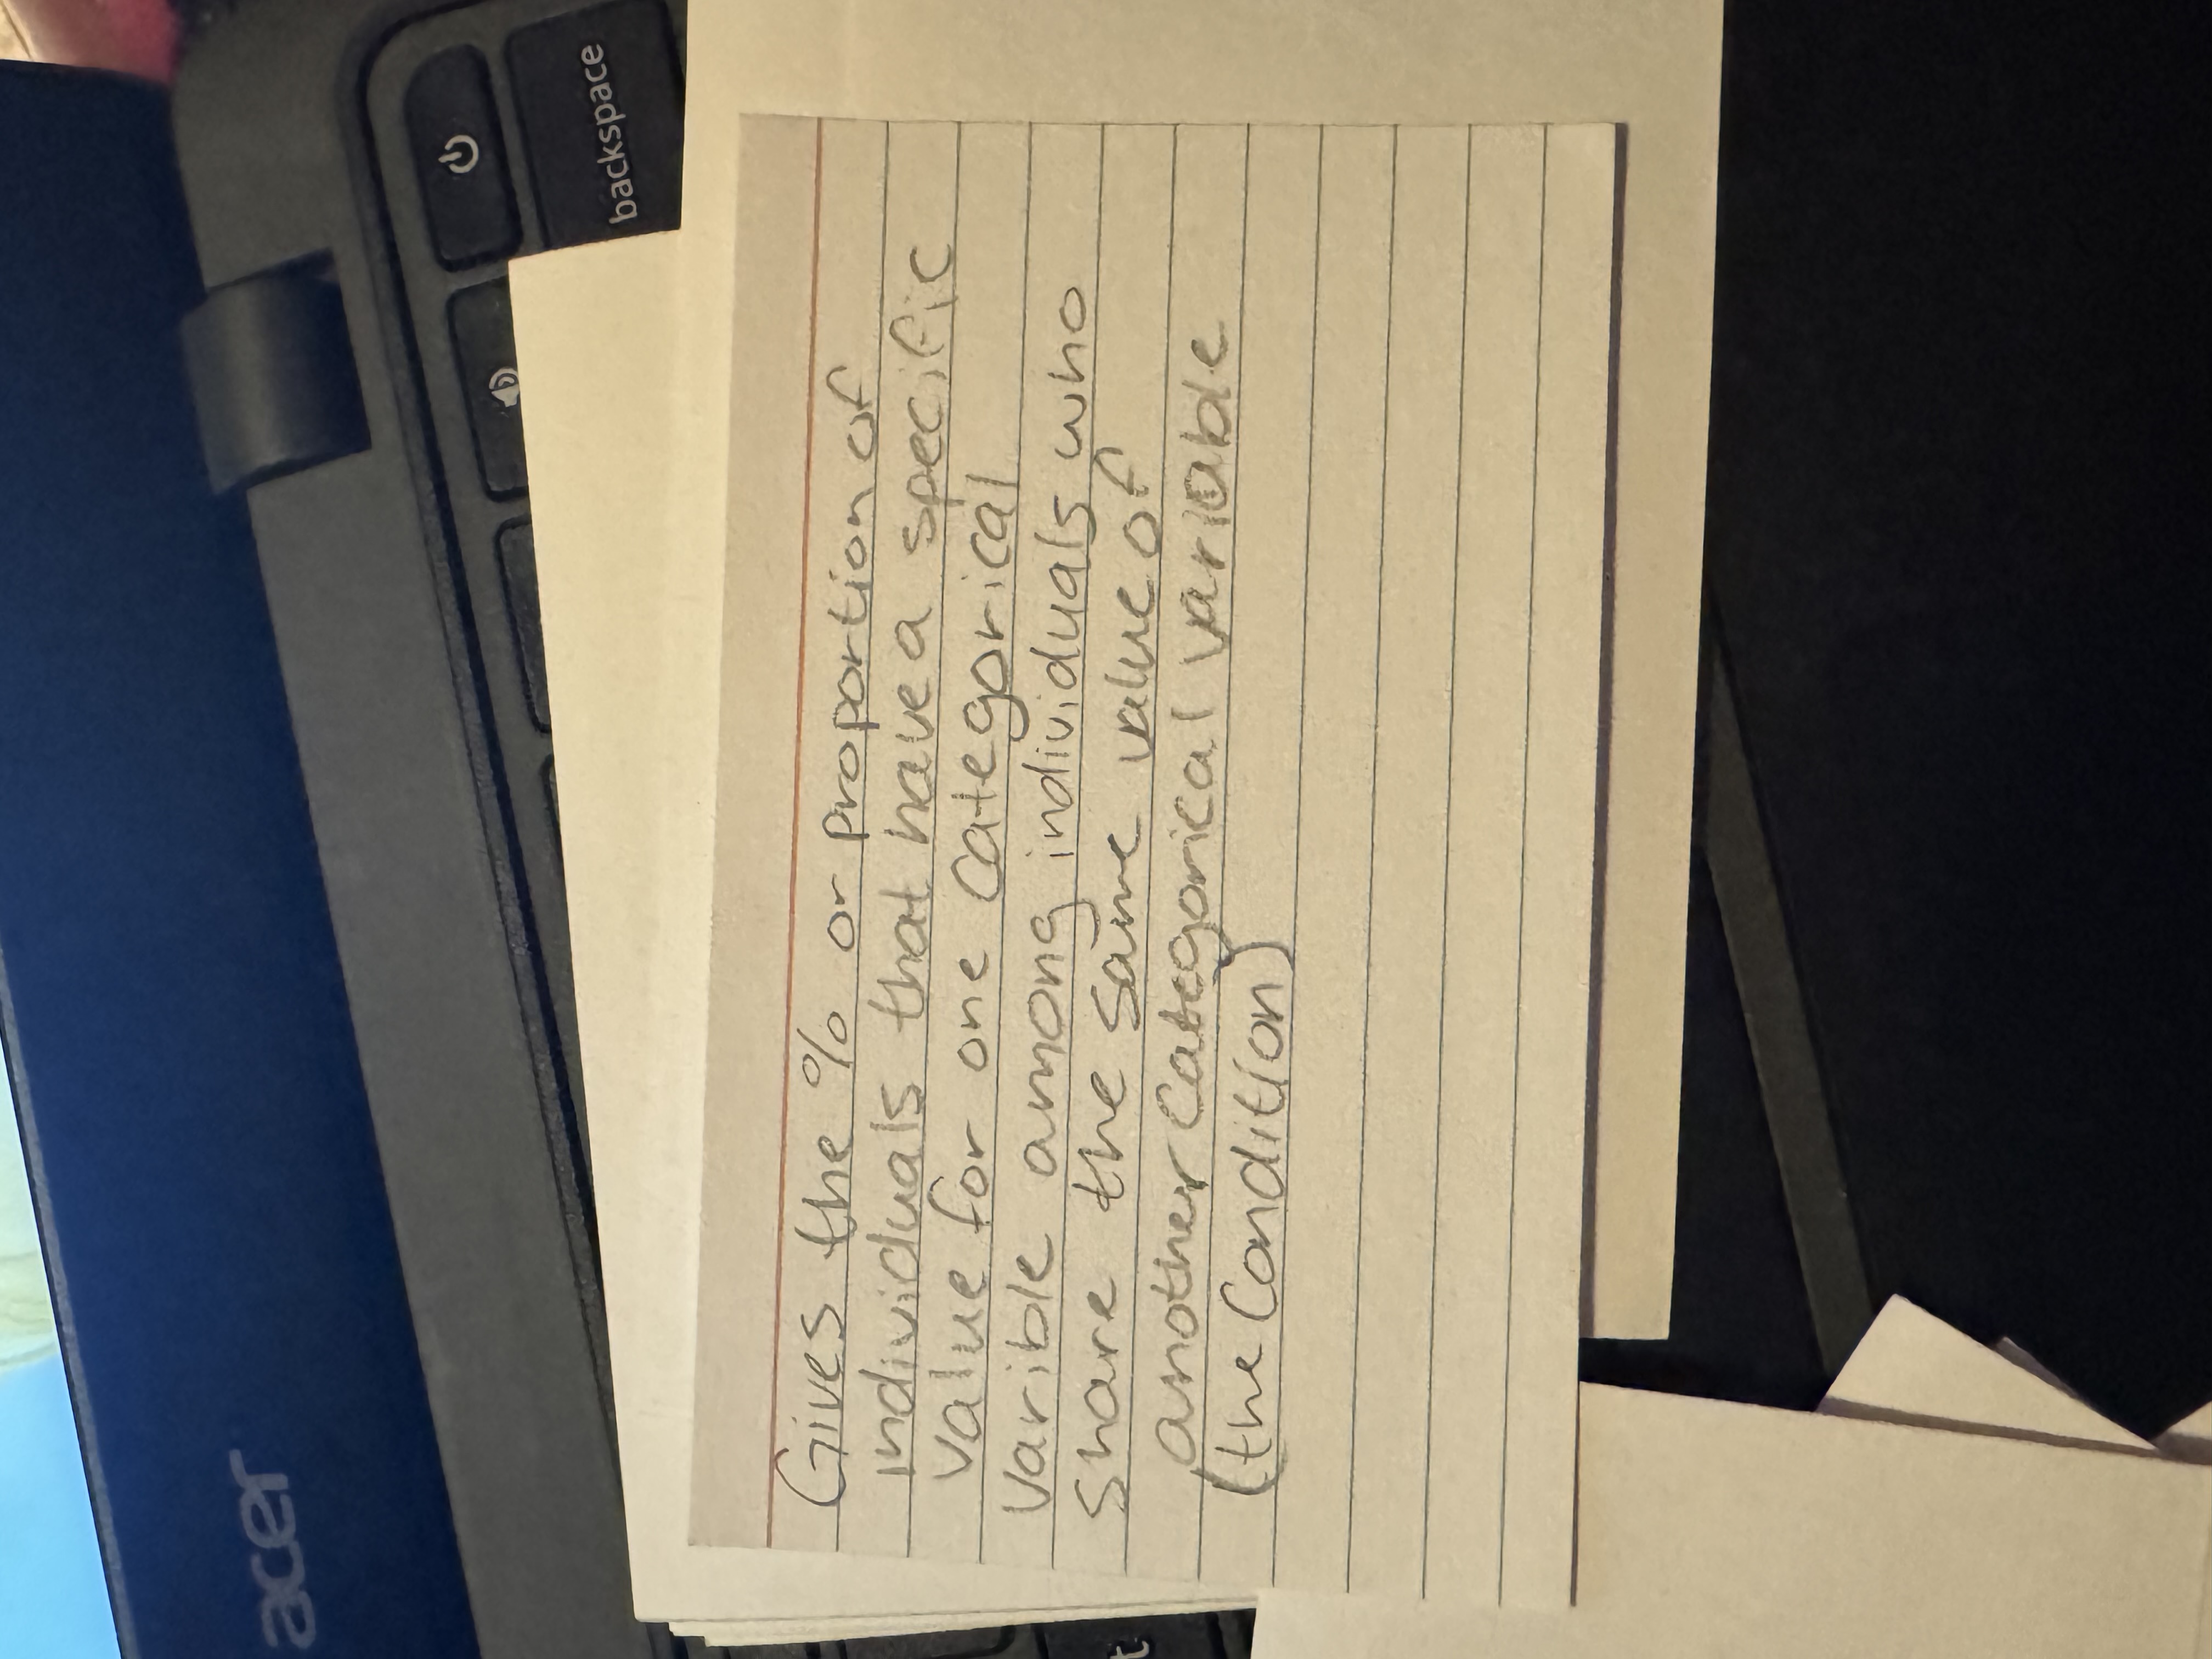 acer
backspace
Gives the % or proportion of
individuals that have a specific
value for one categorical
varible among individuals who
share the same value of
another categorical variable
(the condition)